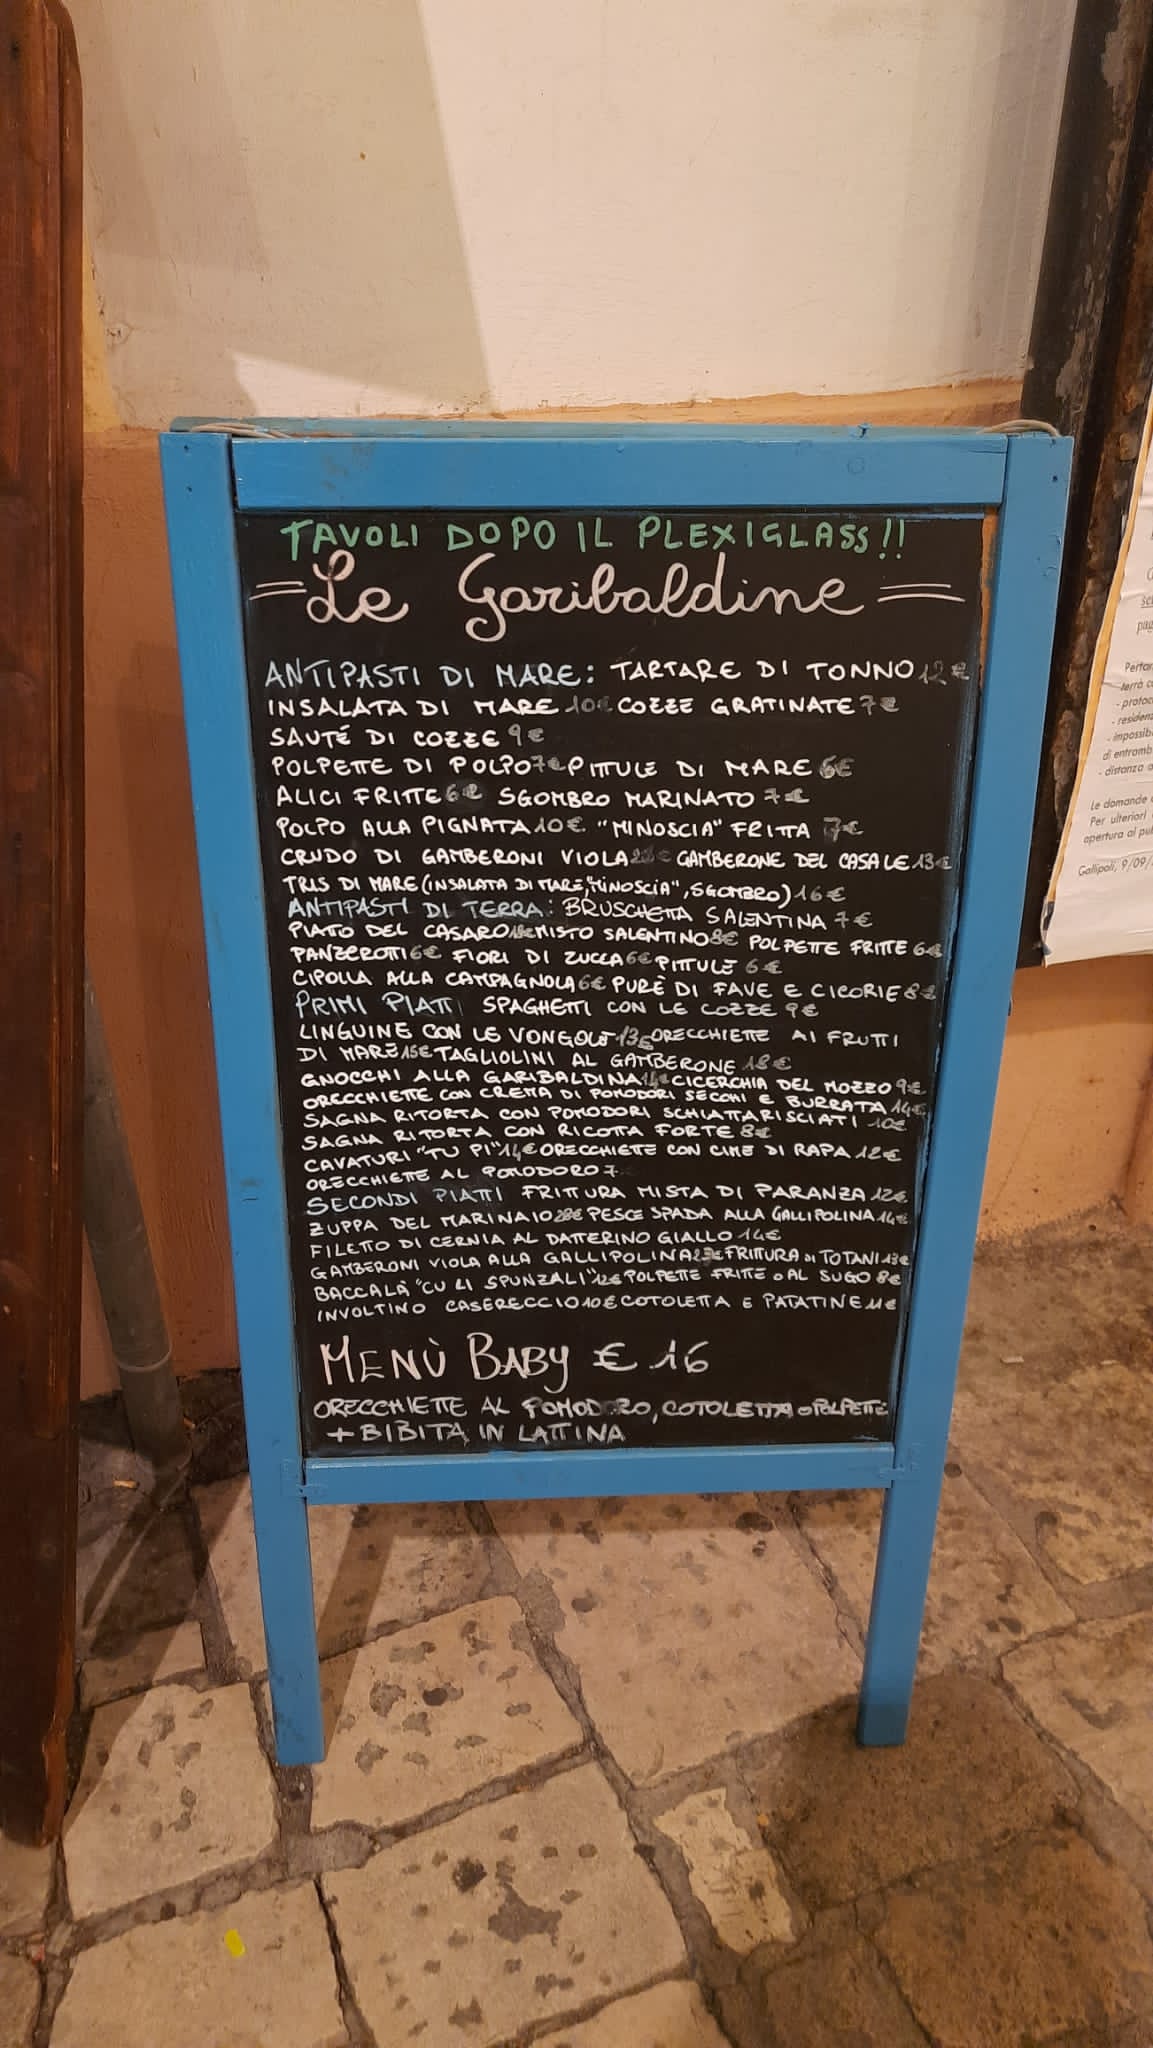 TAVOLI DOPO IL PLEXIGLASS!!
Le Garibaldine
ANTIPASTI DI MARE: TARTARE DI TONNO 12€
INSALATA DI MARE 10€ COZZE GRATINATE 7€
SAUTÉ DI COZZE 9€
POLPETTE DI POLPO 7€ PITTULE DI MARE 6€
ALICI FRITTE 6€ SGOMBRO MARINATO 7€
POLPO ALLA PIGNATA 10€ "MINOSCIA" FRITTA 7€
CRUDO DI GAMBERONI VIOLA GAMBERONE DEL CASALE 13€
TRIS DI MARE (INSALATA DI MARE, "MINOSCIA", SGOMBRO) 16€
ANTIPASTI DI TERRA: BRUSCHETTA SALENTINA 7€
PIATO DEL CASARO MISTO SALENTINO 8€ POLPETTE FRITTE 6€
PANZEROTTI 6€ FIORI DI ZUCCA 6€ PITTULE 6€
CIPOLLA ALLA CAMPAGNOLA 6€ PURÈ DI FAVE E CICORIE 8€
PRIMI PIATTI SPAGHETTI CON LE COZZE 9€
LINGUINE CON LE VONGOLE 13€ ORECCHIETTE AI FRUTTI
DI MARE 15€ TAGLIOLINI AL GAMBERONE 18€
GNOCCHI ALLA GARIBALDINA 14€ CICERCHIA DEL MOZZO 9€
ORECCHIETTE CON CREMA DI POMODORI SECCHI E BURRATA 14€
SAGNA RITORTA CON POMODORI SCHIATTARISCIATI 10€
SAGNA RITORTA CON RICOTTA FORTE 8€
CAVATURI "TU PI" 14€ ORECCHIETTE CON CIME DI RAPA 12€
ORECCHIETTE AL POMODORO 7
SECONDI PIATTI FRITTURA MISTA DI PARANZA 12€
ZUPPA DEL MARINAIO PESCE SPADA ALLA GALLIPOLINA 14€
FILETTO DI CERNIA AL DATTERINO GIALLO 14€
GAMBERONI VIOLA ALLA GALLIPOLINA FRITTURA DI TOTANI 13€
BACCALÀ "CU LI SPUNZALI" 12€ POLPETTE FRITTE O AL SUGO 8€
INVOLTINO CASERECCIO 10€ COTOLETTA E PATATINE 11€
MENÙ BABY € 16
ORECCHIETTE AL POMODORO, COTOLETTA O POLPETTE
+ BIBITA IN LATTINA
Gallipoli, 9/09/